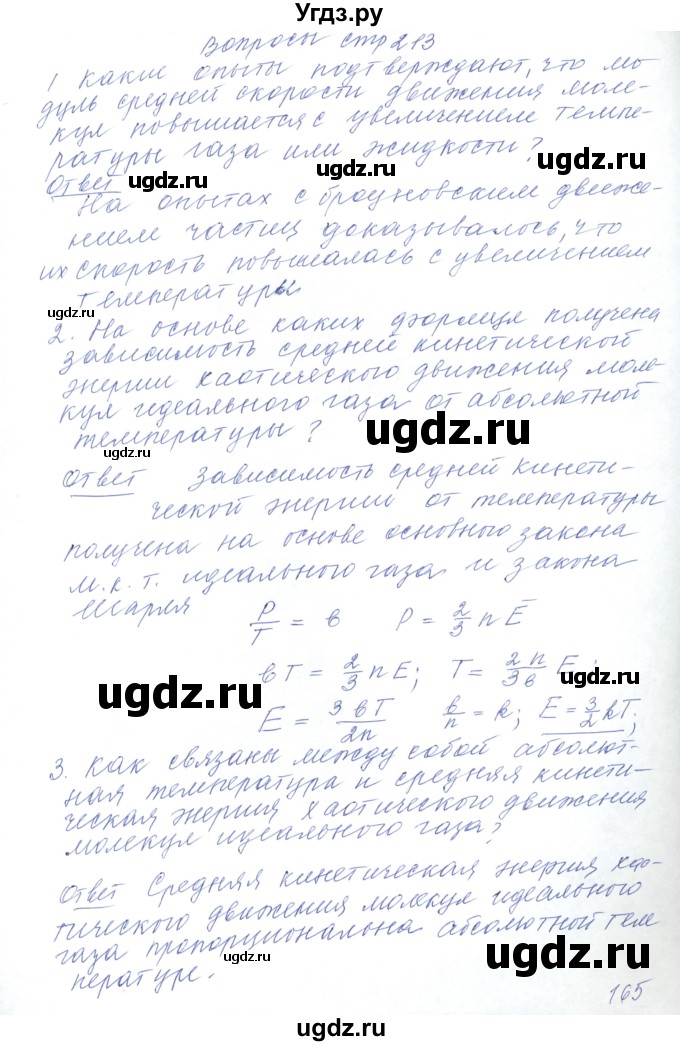 Угдз.ру
Вопросы стр 213
1 Какие опыты подтверждают, что мо-
дуль средней скорости движения моле-
кул повышается с увеличением темпе-
ратуры газа или жидкости?
Ответ
ugdz.ru ugdz.ru
На опытах с броуновским движе-
нием частиц доказывалось, что
их скорость повышалась с увеличением
температуры
ugdz.ru
2. На основе каких формул получена
зависимость средней кинетической
энергии хаотического движения моле-
кул идеального газа от абсолютной
температуры?
ugdz.ru
Ответ Зависимость средней кинети-
ческой энергии от температуры
получена на основе основного закона
м.к.т. идеального газа и закона
Шарля P/T = в P = 2/3 n Ē
вT = 2/3 n E; T = 2n/3в E;
ugdz.ru ugdz.ru
E = 3вT/2n в/n = k; E = 3/2 kT;
3. Как связаны между собой абсолют-
ная температура и средняя кинети-
ческая энергия хаотического движения
молекул идеального газа?
ugdz.ru
Ответ Средняя кинетическая энергия хао-
тического движения молекул идеального
газа пропорциональна абсолютной тем
пературе.
ugdz.ru ugdz.ru
165
ugdz.ru